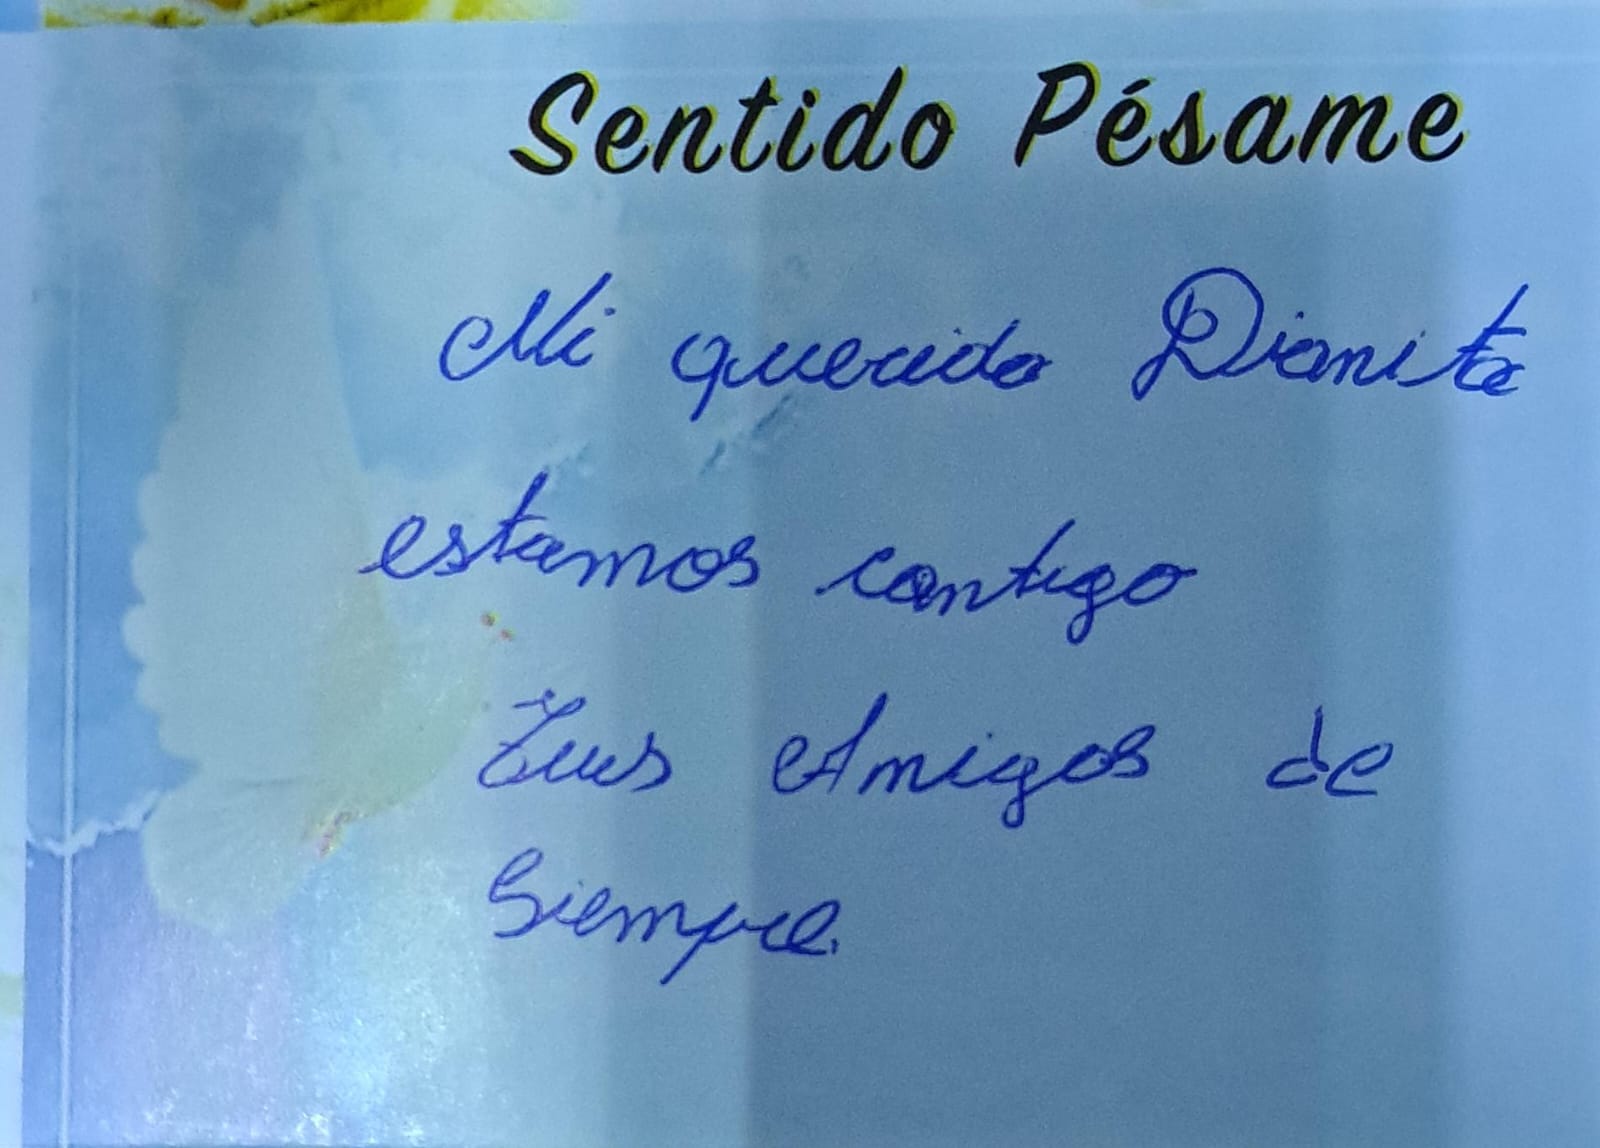 Sentido Pésame
Mi querida Dianita
estamos contigo
Tus Amigos de
Siempre.